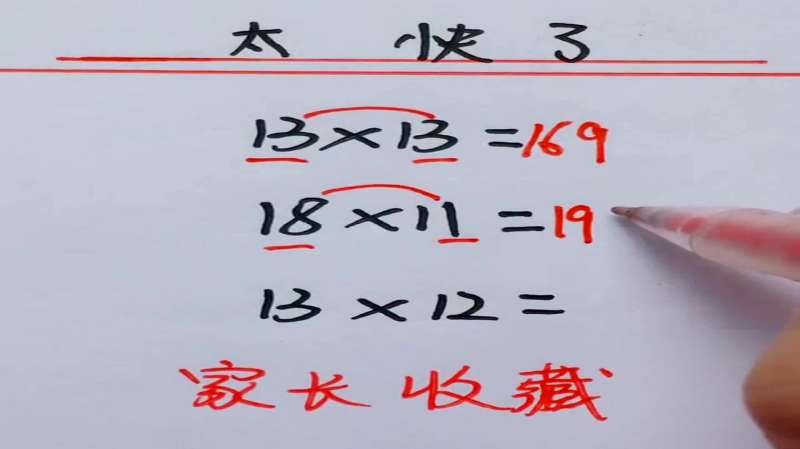 太 快 了
13×13=169
18×11=19
13×12=
家长收藏